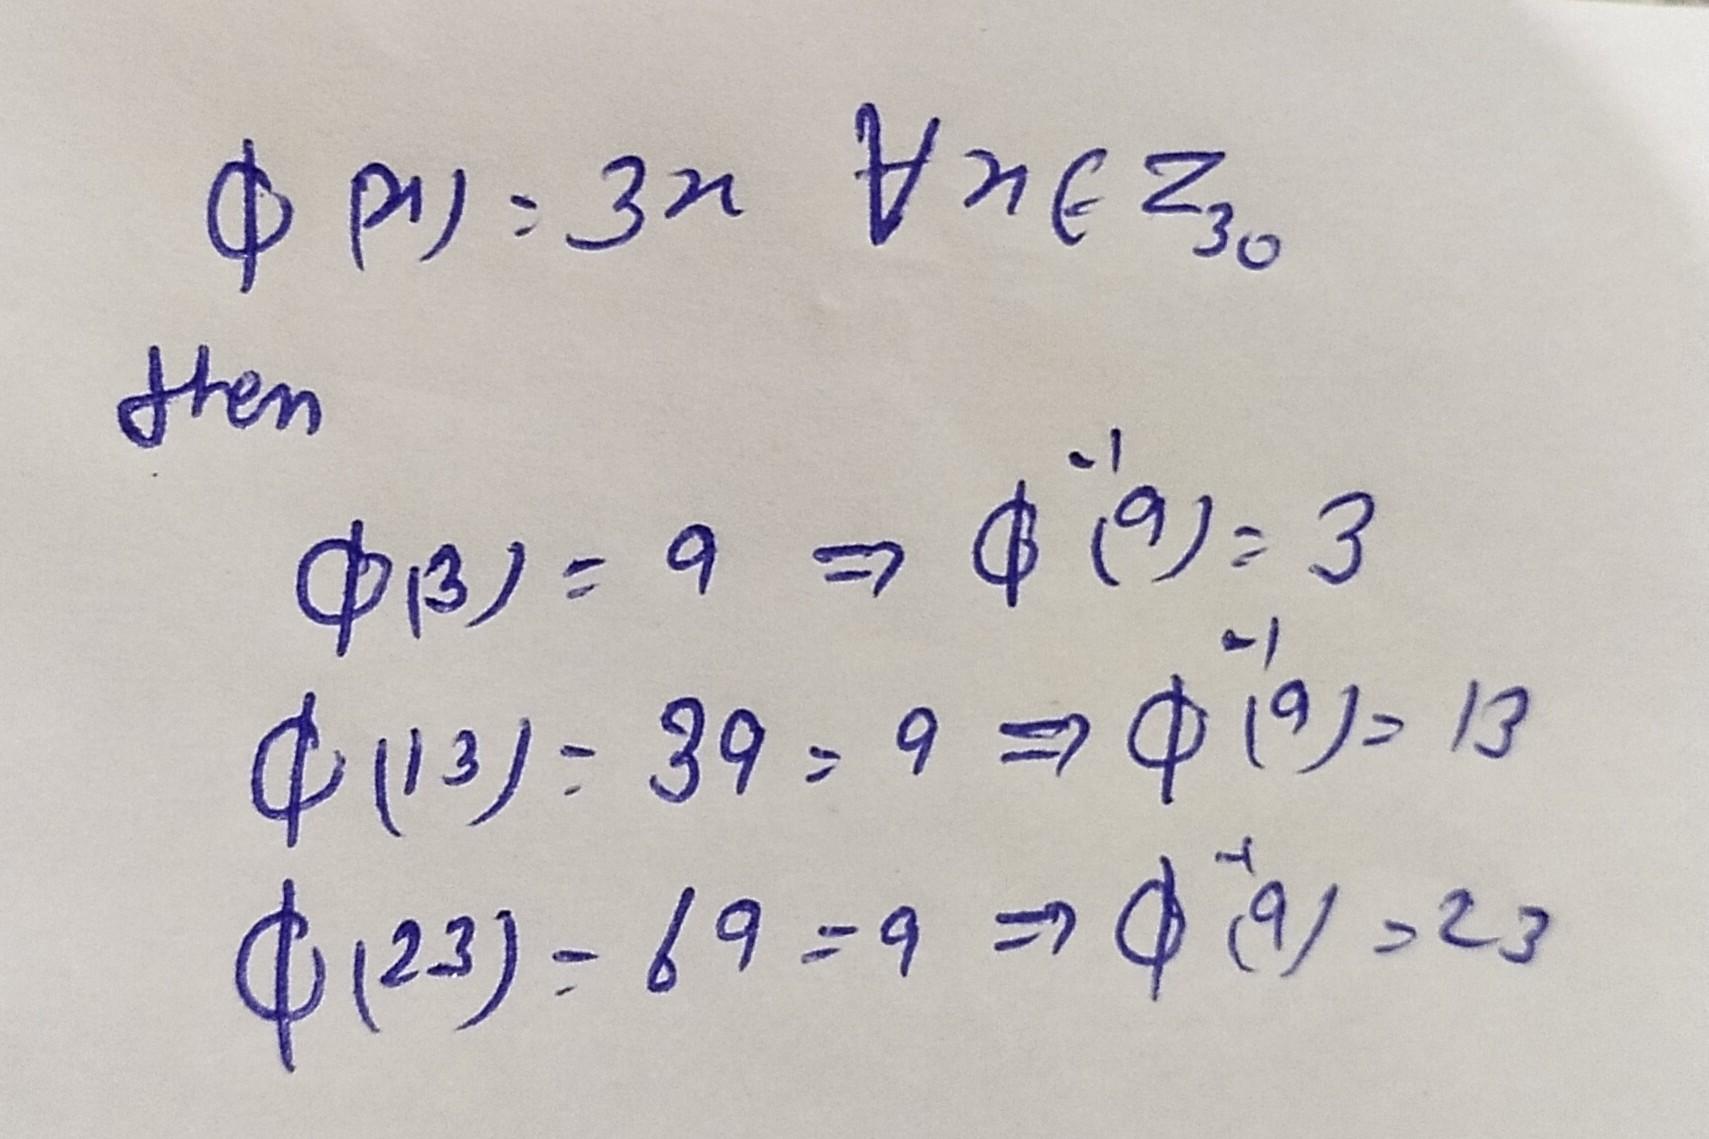 ϕ(x) = 3x ∀ x ∈ Z₃₀
then
ϕ(3) = 9 ⇒ ϕ⁻¹(9) = 3
ϕ(13) = 39 = 9 ⇒ ϕ⁻¹(9) = 13
ϕ(23) = 69 = 9 ⇒ ϕ⁻¹(9) = 23